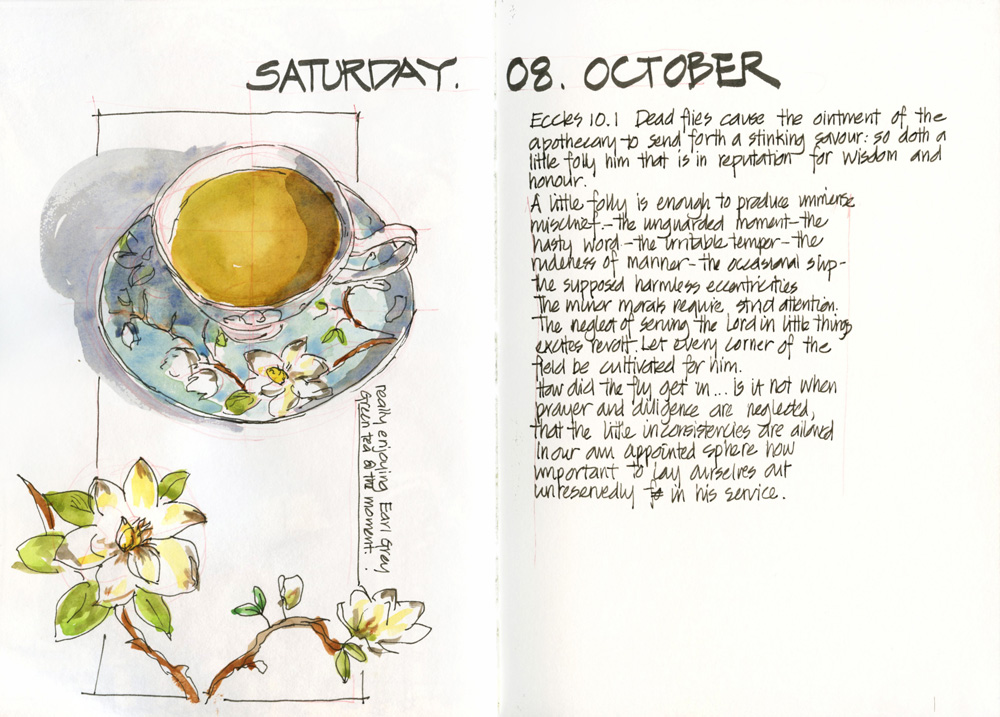 SATURDAY. 08. OCTOBER
really enjoying Earl Grey
Green tea @ the moment.
Eccles 10.1 Dead flies cause the ointment of the
apothecary to send forth a stinking savour: so doth a
little folly him that is in reputation for wisdom and
honour.
A little folly is enough to produce immense
mischief.-the unguarded moment-the
hasty word-the irritable temper-the
rudeness of manner-the occasional slip-
the supposed harmless eccentricities
The minor morals require strict attention.
The neglect of serving the Lord in little things
excites revolt- Let every corner of the
field be cultivated for him.
How did the fly get in... is it not when
prayer and diligence are neglected,
that the little inconsistencies are allowed
In our own appointed sphere how
important to lay ourselves out
unreservedly in his service.